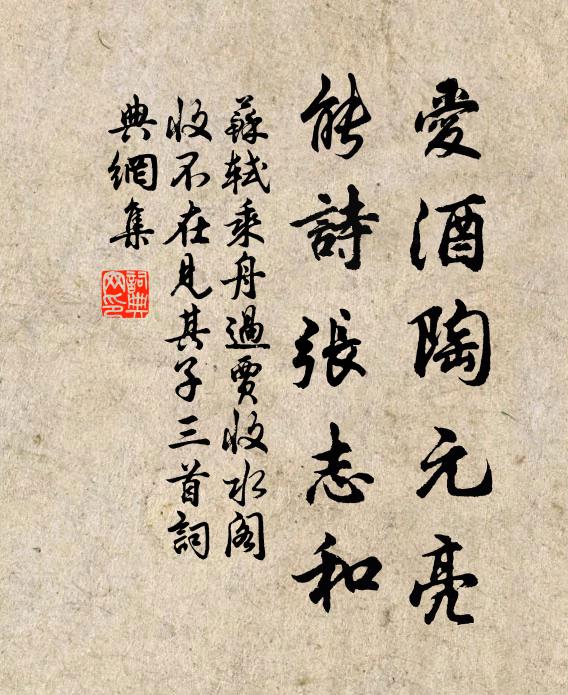 愛酒陶元亮
能詩張志和
蘇軾乘舟過賈收水阁
收不在見其子三首詞
典網集
詞典
网印